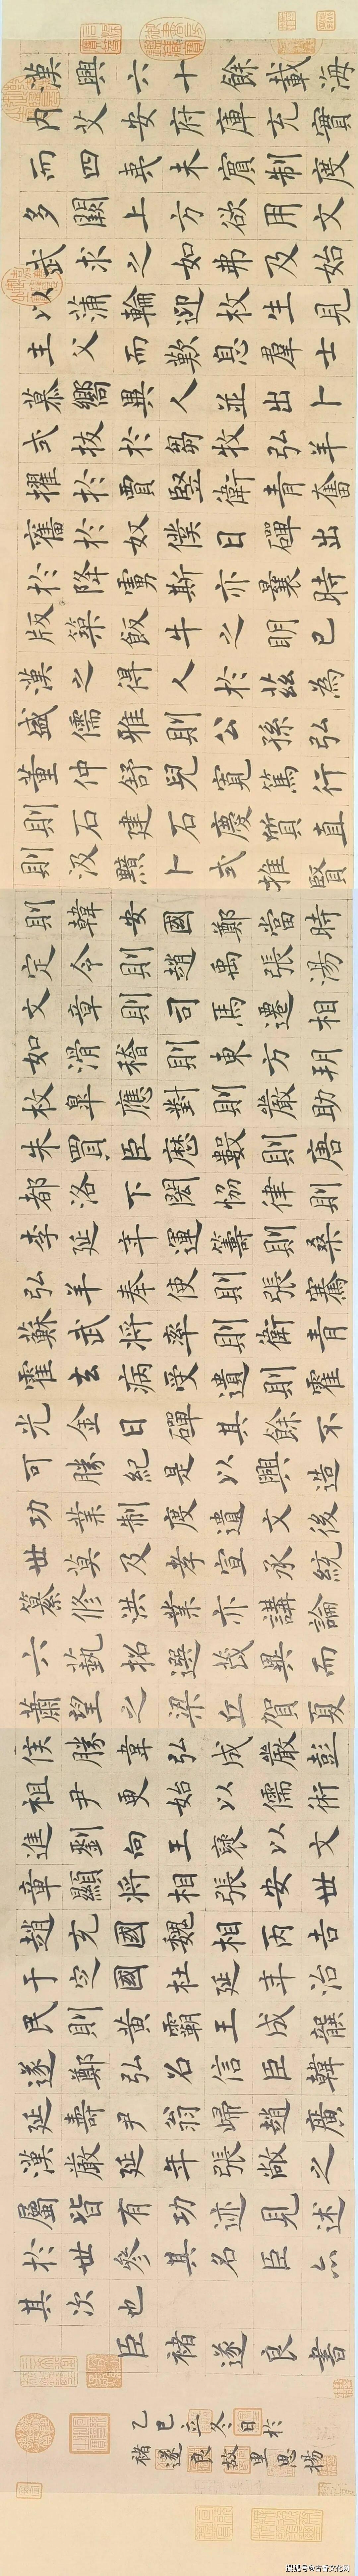 漢興六十餘載海
内艾安府庫充實
而四夷未賓制度
多闕上方欲用文
武求之如弗及始
以蒲輪迎枚生見
主父而歎息羣士
慕嚮異人並出卜
式拔於芻牧弘羊
擢於賈豎衛青奮
舊於奴僕日磾出
於降虜斯亦曩時
版築飯牛之明已
漢之得人於茲為
盛儒雅則公孫弘
董仲舒兒寬篤行
則石建石慶質直
則汲黯卜式推賢
則韓安國鄭當時
定令則趙禹張湯
文章則司馬遷相
如滑稽則東方朔
枚皋應對則嚴助
朱買臣歷數則唐
都洛下閎恊律則
李延年運籌則桑
弘羊奉使則張騫
蘇武將率則衛青
霍去病受遺則霍
光金日磾其餘不
可勝紀是以興造
功業制度遺文後
世莫及孝宣承統
纂修洪業亦講論
六藝招選茂異而
蕭望之梁丘賀夏
侯勝韋弘成嚴彭
祖尹更始以儒術
進劉向王褒以文
章顯將相張安世
趙充國魏相丙吉
于定國杜延年治
民則黃霸王成龔
遂鄭弘召信臣韓
延壽尹翁歸趙廣
漢嚴延年張敞之
屬皆有功迹見述
於世參其名臣亦
其次也
臣褚遂良書
乙巳立冬日於
褚遂良故里恩揚
搜狐号@古香文化网